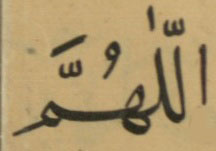 اللّٰهُمَّ